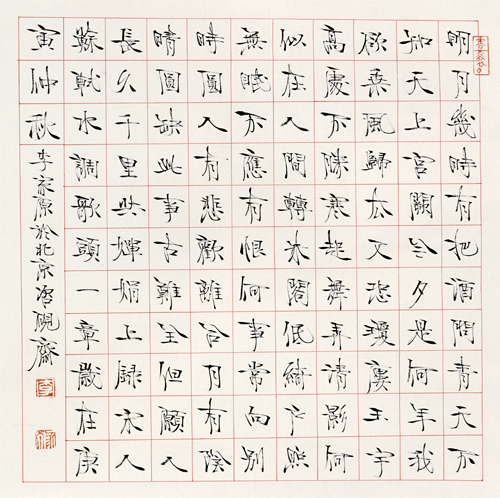 明月幾時有把酒問青天不
知天上宮闕今夕是何年我
欲乘風歸去又恐瓊樓玉宇
高處不勝寒起舞弄清影何
似在人間轉朱閣低綺戶照
無眠不應有恨何事常向別
時圓人有悲歡離合月有陰
晴圓缺此事古難全但願人
長久千里共嬋娟上録宋人
蘇軾水調歌頭一章歲在庚
寅仲秋李家原於北京硯齋